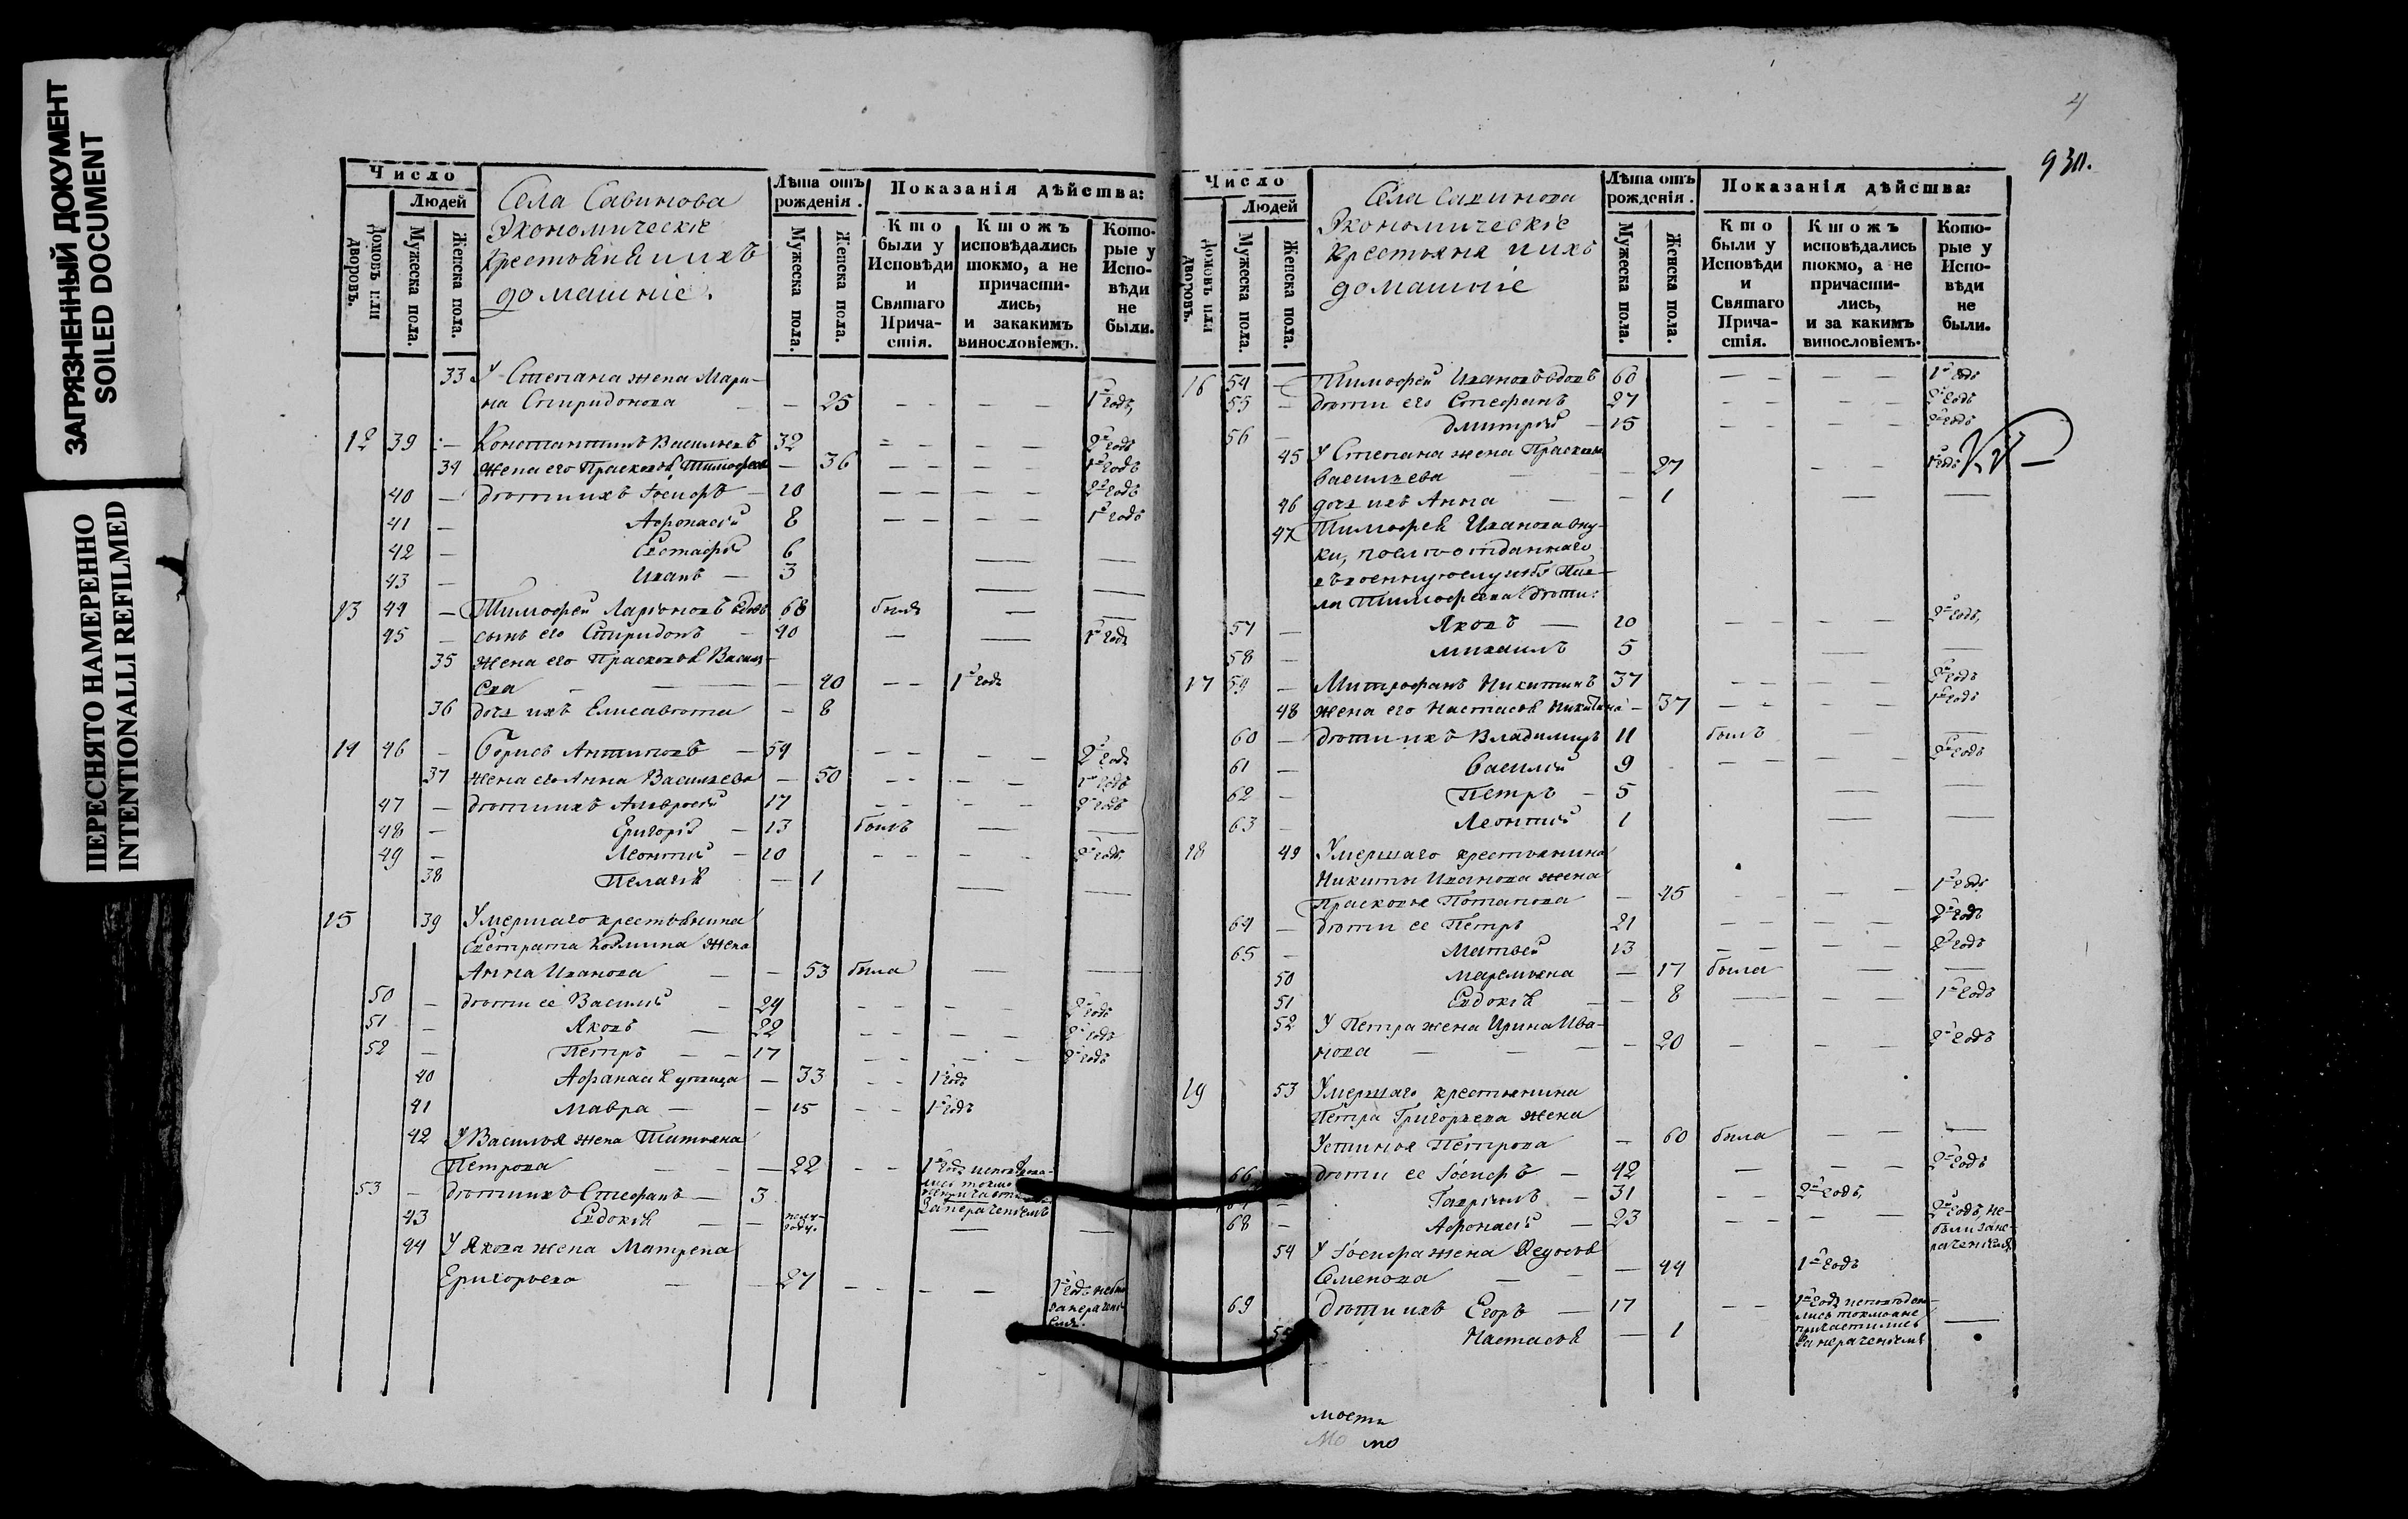 ЗАГРЯЗНЕННЫЙ ДОКУМЕНТ
SOILED DOCUMENT
ПЕРЕСНЯТО НАМЕРЕННО
INTENTIONALLI REFILMED
Число
Людей
Домовъ или дворовъ.
Мужеска пола.
Женска пола.
Села Савинова
Экономическіе
крестьяня и ихъ
домашніе.
Лѣта отъ рожденія.
Мужеска пола.
Женска пола.
Показанія дѣйства:
Кто были у Исповѣди и Святаго Причастія.
Ктожъ исповѣдались токмо, а не причастились, и закакимъ винословіемъ.
Которые у Исповѣди не были.
33 У Степана жена Мари-
на Спиридонова 25 1й годъ,
12 39 Константинъ Васильевъ 32 2й годъ
34 жена его Прасковья Тимофеева 36 1й годъ
40 дѣти ихъ Іосифъ 10 2й годъ
41 Афонасій 8 1й годъ
42 Евстафій 6
43 Иванъ 3
13 44 Тимофей Ларіоновъ вдовъ 68 былъ
45 сынъ его Спиридонъ 40 1й годъ
35 жена его Прасковья Василь-
ева 40 1й годъ
36 дочь ихъ Елисавѣта 8
14 46 Борисъ Антиповъ 54 2й годъ
37 жена его Анна Васильева 50 1й годъ
47 дѣти ихъ Амвросій 17 2й годъ
48 Григорій 13 былъ
49 Леонтій 10 2й годъ
38 Пелагія 1
15 39 Умершаго крестьянина
Евстрата Козмина жена
Анна Иванова 53 была
50 дѣти ее Василій 24 2й годъ
51 Яковъ 22 2й годъ
52 Петръ 17 2й годъ
40 Афанасія 33 1й годъ
41 Мавра 15 1й годъ
42 У Василья жена Татьяна
Петрова 22 1й годъ исповѣдова-
лись токмо
53 дѣти ихъ Стефанъ 3
за нераченіемъ
43 Евдокія полу-
году.
44 У Якова жена Матрена
Григорьева 27 1й годъ не были
за нераченіемъ
4
930.
Число
Людей
Домовъ или дворовъ.
Мужеска пола.
Женска пола.
Села Савинова
Экономическіе
крестьяня и ихъ
домашніе
Лѣта отъ рожденія.
Мужеска пола.
Женска пола.
Показанія дѣйства:
Кто были у Исповѣди и Святаго Причастія.
Ктожъ исповѣдались токмо, а не причастились, и за какимъ винословіемъ.
Которые у Исповѣди не были.
16 54 Тимофей Ивановъ вдовъ 60 1й годъ
55 дѣти его Стефанъ 27 2й годъ
56 Дмитрей 15 2й годъ
45 У Степана жена Прасковья
Васильева 27 1й годъ
46 дочь ихъ Анна 1
47 Тимофея Иванова вну-
ки, послѣ отданнаго
въ военную службу Пав-
ла Тимофеева дѣти:
57 Яковъ 10 2й годъ,
58 Михаилъ 5
17 59 Митрофанъ Никитинъ 37 2й годъ
48 жена его Настасья Никитина 37 1й годъ
60 дѣти ихъ Владимиръ 11 былъ
61 Василій 9 2й годъ
62 Петръ 5
63 Леонтій 1
18 49 Умершаго крестьянина
Никиты Иванова жена
Прасковья Потапова 45 1й годъ
64 дѣти ее Петръ 21 2й годъ
65 Матвей 13 2й годъ
50 Маремьяна 17 была
51 Евдокія 8 1й годъ
52 У Петра жена Ирина Ива-
нова 20 2й годъ
19 53 Умершаго крестьянина
Петра Григорьева жена
Устинья Петрова 60 была
66 дѣти ее Іосифъ 42 2й годъ
Гавріилъ 31 2й годъ,
68 Афонасій 23 2й годъ, не-
были за не-
раченіемъ
54 У Іосифа жена Ѳедосья
Семенова 44 1й годъ
69 дѣти ихъ Егоръ 17 1й годъ исповѣдова-
лись токмо а не
причастились
за нераченіемъ
55 Настасья 1
мость
мо мо